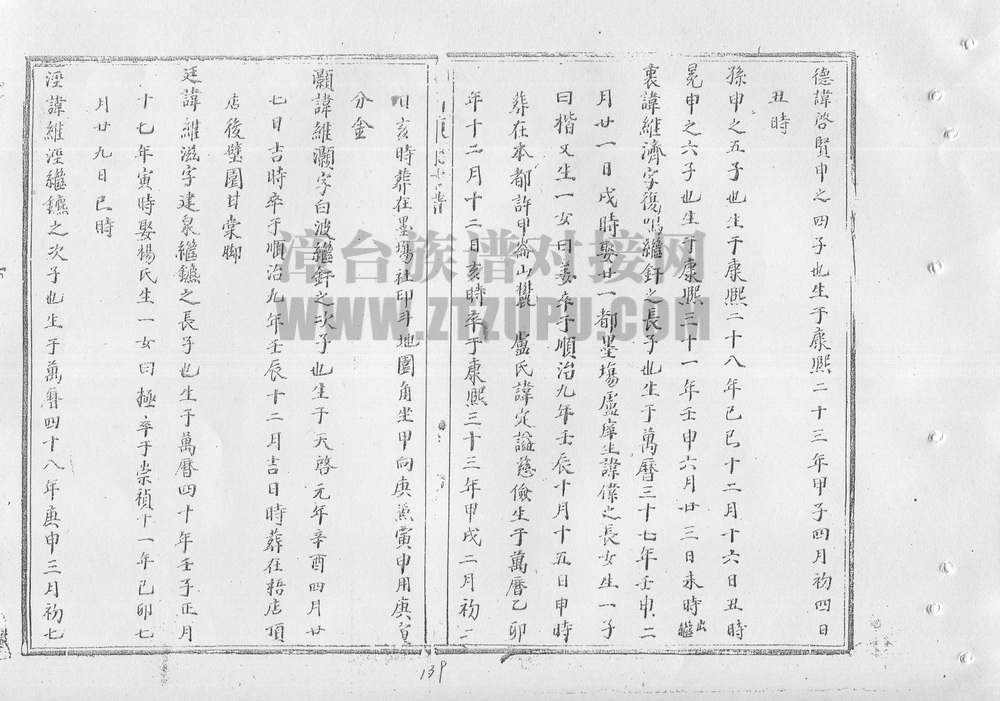 德諱啓賢申之四子也生于康熙二十三年甲子四月初四日
丑時
孫申之五子也生于康熙二十八年己巳十二月十六日丑時
晃申之六子也生于康熙三十一年壬申六月廿三日未時出繼
裏諱維濟字復鳴繼釬之長子也生于萬曆三十七年壬申二
月廿一日戌時娶廿一都墨場盧庠生諱偉之長女生一子
曰楷又生一女曰姜卒于順治九年壬辰十月十五日申時
葬在本都許甲崙山 盧氏諱定謚慈儉生于萬曆乙卯
年十二月十二日亥時卒于康熙三十三年甲戌二月初二
日亥時葬在墨場社印斗地圍角坐甲向庚兼寅申用庚寅
分金
灝諱維灝字白波繼釬之次子也生于天啓元年辛酉四月廿
七日吉時卒于順治九年壬辰十二月吉日時葬在稻店頂
店後壁圍甘棠脚
廷諱維滋字建泉繼鑣之長子也生于萬曆四十年壬子正月
十七年寅時娶楊氏生一女曰極卒于崇禎十一年己卯七
月廿九日巳時
涇諱維涇繼鑣之次子也生于萬曆四十八年庚申三月初七
漳台族谱对接网
WWW.ZTZUPU.COM
139